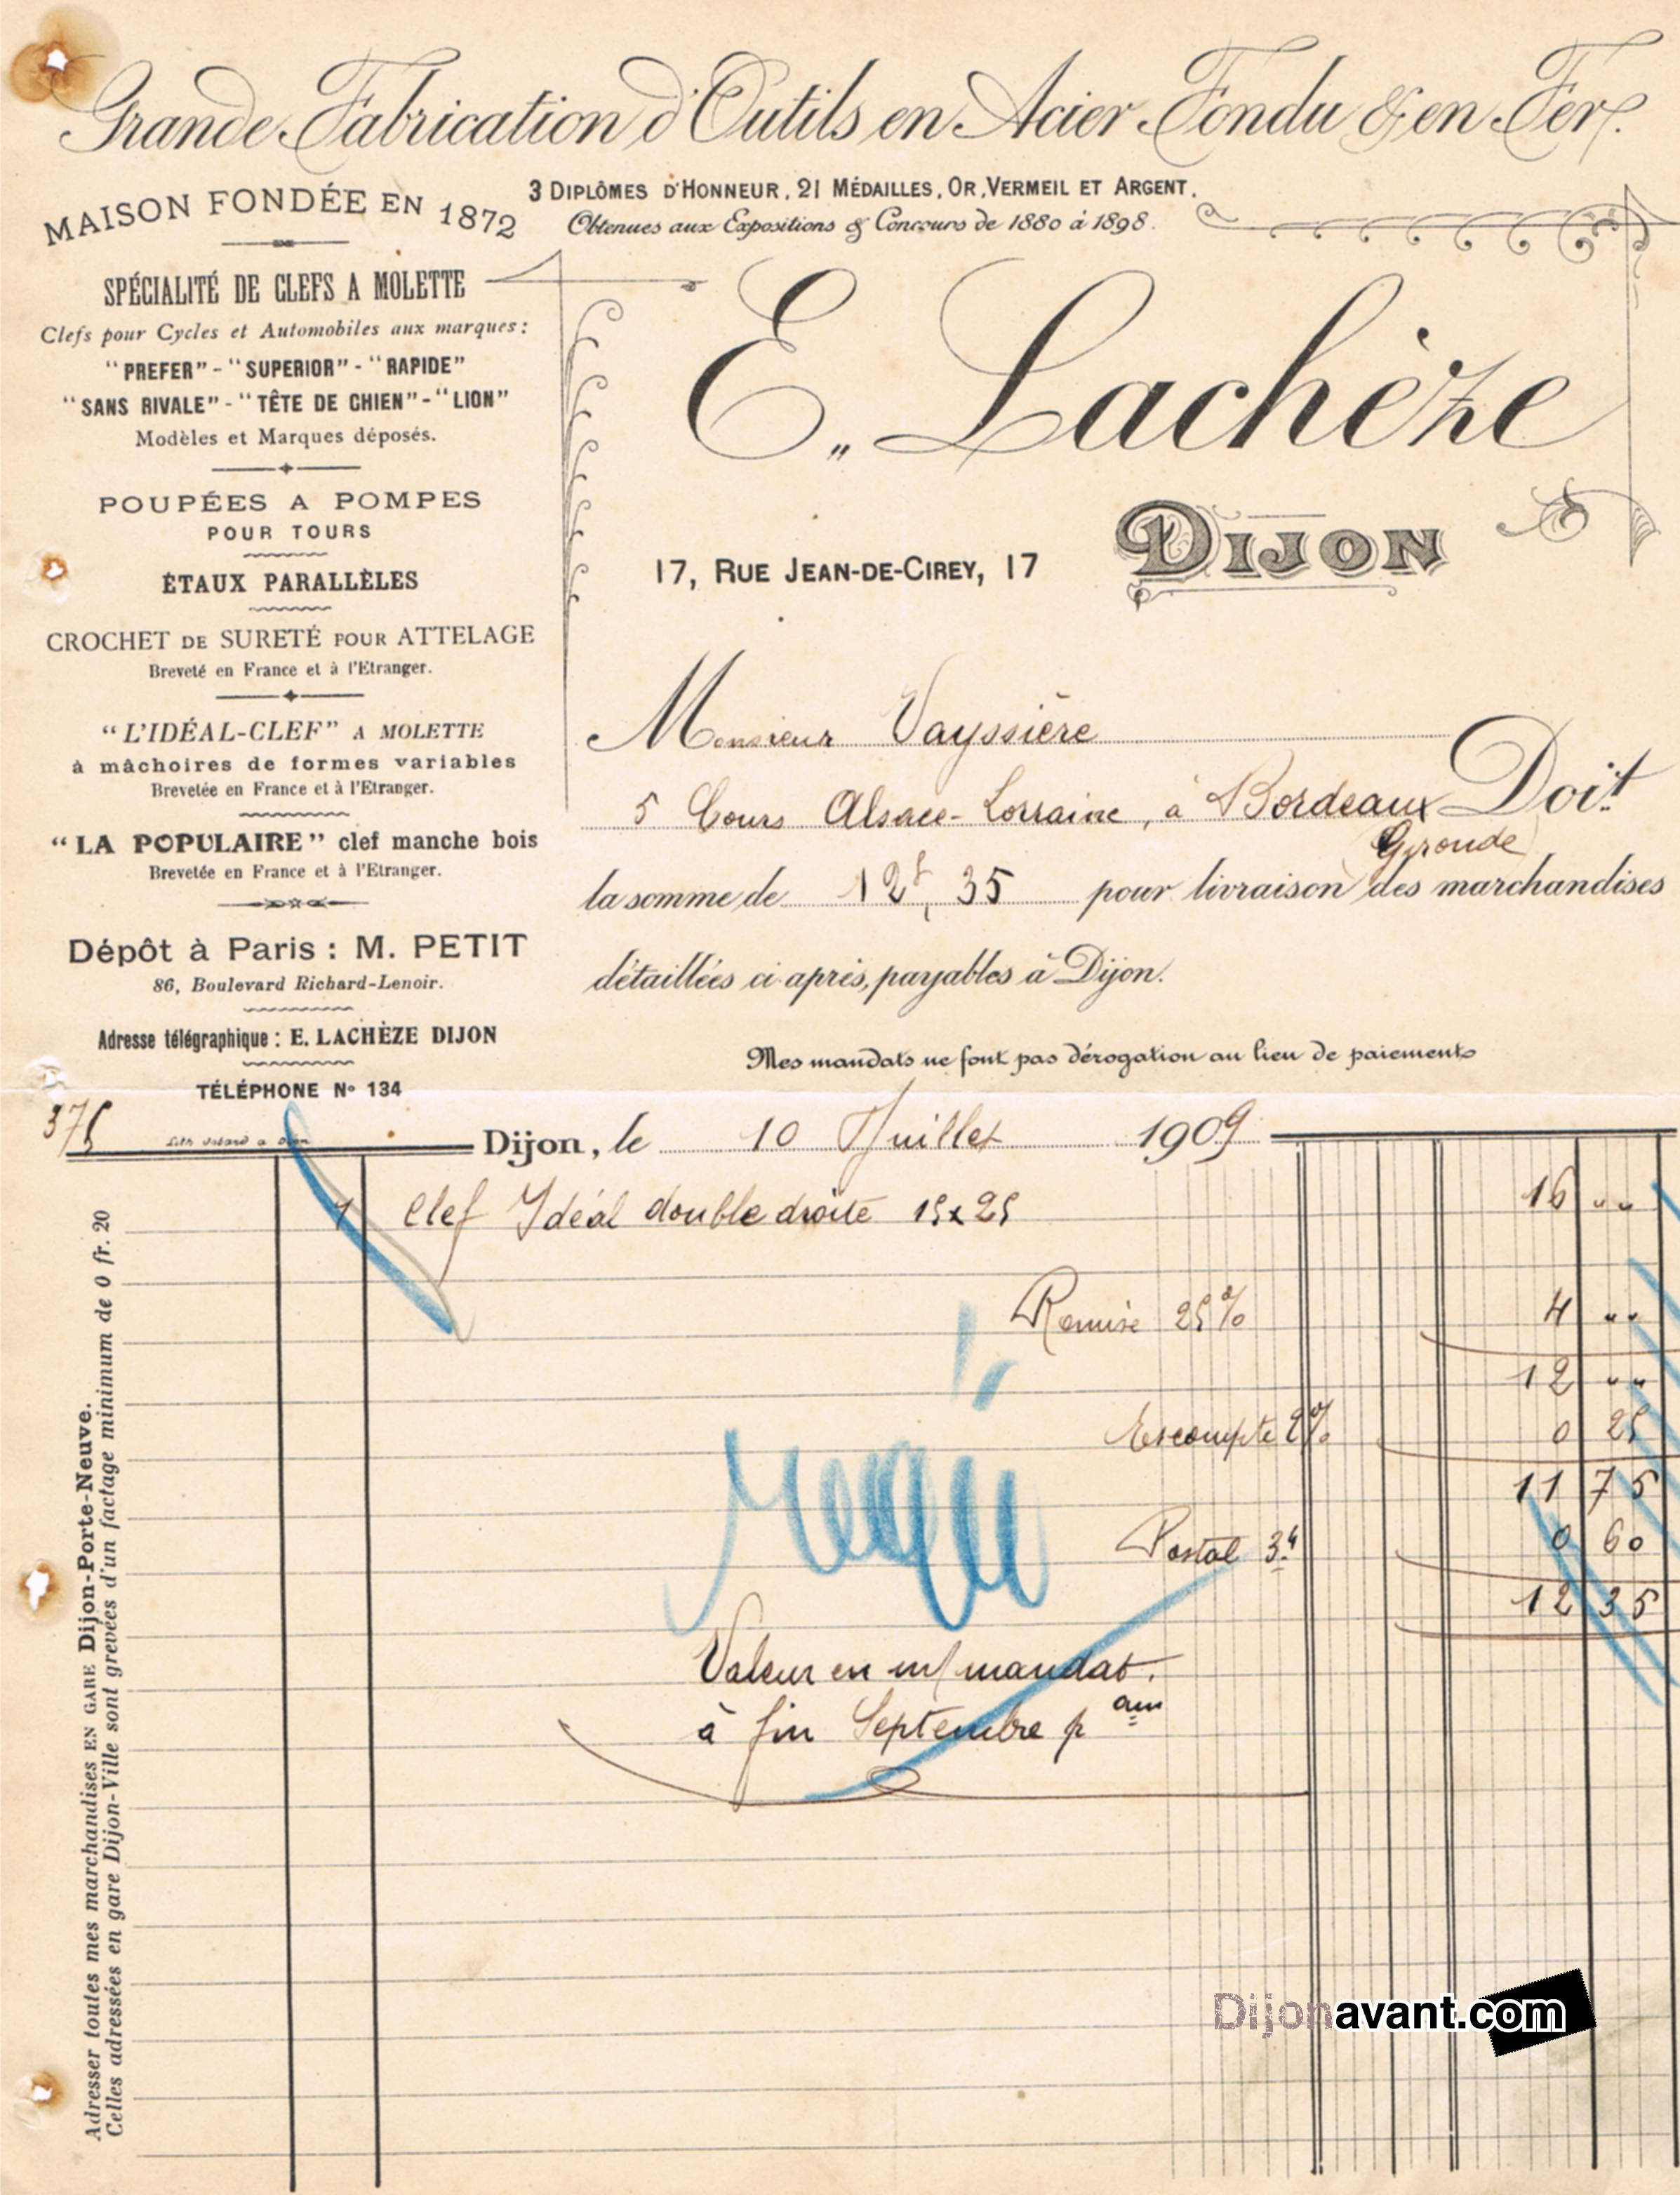 Grande Fabrication d'Outils en Acier Fondu & en Fer.
MAISON FONDÉE EN 1872
3 DIPLÔMES D'HONNEUR, 21 MÉDAILLES, OR, VERMEIL ET ARGENT.
Obtenues aux Expositions & Concours de 1880 à 1898.
SPÉCIALITÉ DE CLEFS A MOLETTE
Clefs pour Cycles et Automobiles aux marques:
"PREFER" - "SUPERIOR" - "RAPIDE"
"SANS RIVALE" - "TÊTE DE CHIEN" - "LION"
Modèles et Marques déposés.
POUPÉES A POMPES
POUR TOURS
ÉTAUX PARALLÈLES
CROCHET DE SURETÉ POUR ATTELAGE
Breveté en France et à l'Etranger.
"L'IDÉAL-CLEF" A MOLETTE
à mâchoires de formes variables
Brevetée en France et à l'Etranger.
"LA POPULAIRE" clef manche bois
Brevetée en France et à l'Etranger.
Dépôt à Paris : M. PETIT
86, Boulevard Richard-Lenoir.
Adresse télégraphique : E. LACHÈZE DIJON
TÉLÉPHONE No 134
E. Lachèze
17, RUE JEAN-DE-CIREY, 17
DIJON
Monsieur Vayssière
5 Cours Alsace-Lorraine, à Bordeaux Doit
Gironde
la somme de 12f, 35 pour livraison des marchandises
détaillées ci après, payables à Dijon.
Mes mandats ne font pas dérogation au lieu de paiement
Dijon, le 10 Juillet 1909
1 Clef Idéal double droite 15x25 16 ""
Remise 25% 4 ""
12 ""
Escompte 2% 0 25
11 75
Postal 3k 0 60
12 35
Valeur en m/ mandat.
à fin Septembre pain
Adresser toutes mes marchandises EN GARE Dijon-Porte-Neuve.
Celles adressées en gare Dijon-Ville sont grevées d'un factage minimum de 0 fr. 20
Dijonavant.com